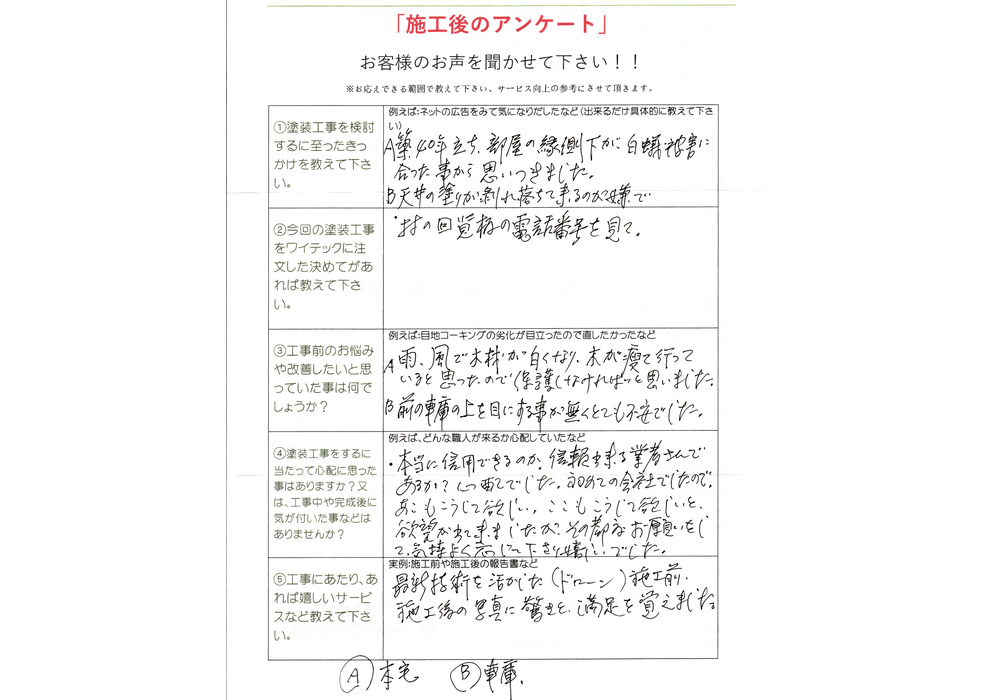 「施工後のアンケート」
お客様のお声を聞かせて下さい！！
※お応えできる範囲で教えて下さい、サービス向上の参考にさせて頂きます。
①塗装工事を検討
するに至ったきっ
かけを教えて下さ
い。
例えば:ネットの広告をみて気になりだしたなど（出来るだけ具体的に教えて下さ
い）
A築40年立ち、部屋の縁側下がに白蟻被害に
合った事から思いつきました。
B天井の塗りが剥れ落ちて来るのが嫌で
②今回の塗装工事
をワイテックに注
文した決めてがあ
れば教えて下さ
い。
・村の回覧板の電話番号を見て。
③工事前のお悩み
や改善したいと思
っていた事は何で
しょうか？
例えば:目地コーキングの劣化が目立ったので直したかったなど
A雨、風で木材が白くなり、木が痩て行って
いると思ったので保護しなければっと思いました。
B前の車庫の上を目にする事が無くとても不安でした。
④塗装工事をするに
当たって心配に思った
事はありますか？又
は、工事中や完成後に
気が付いた事などは
ありませんか？
例えば、どんな職人が来るか心配していたなど
・本当に信用できるのか、信頼出来る業者さんで
あるか？心配でした。初めての会社でしたので。
あこもこうして欲しい、ここもこうして欲しいと、
欲望が出て来ましたが、その都度お願いをし
て、気持よく応じて下さり嬉しいでした。
⑤工事にあたり、あ
れば嬉しいサービ
スなど教えて下さ
い。
実例:施工前や施工後の報告書など
最新技術を活かした（ドローン）施工前、
施工後の写真に驚きと、満足を覚えました
Ⓐ本宅　Ⓑ車庫.